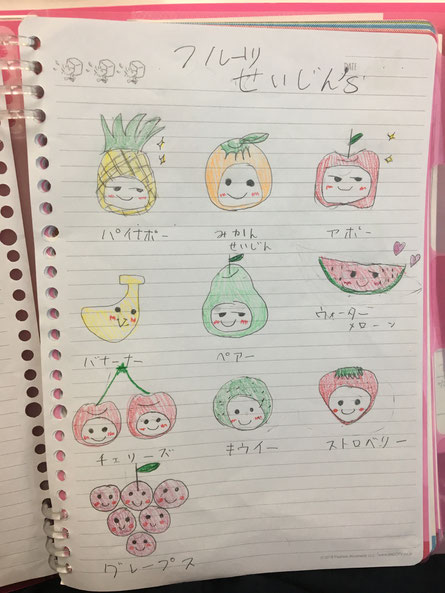 フルーツ
せいじん's
DATE
パイナポー
みかん
せいじん
アポー
バナーナー
ペアー
ウォーター
メローン
チェリーズ
キウイー
ストロベリー
グレープス